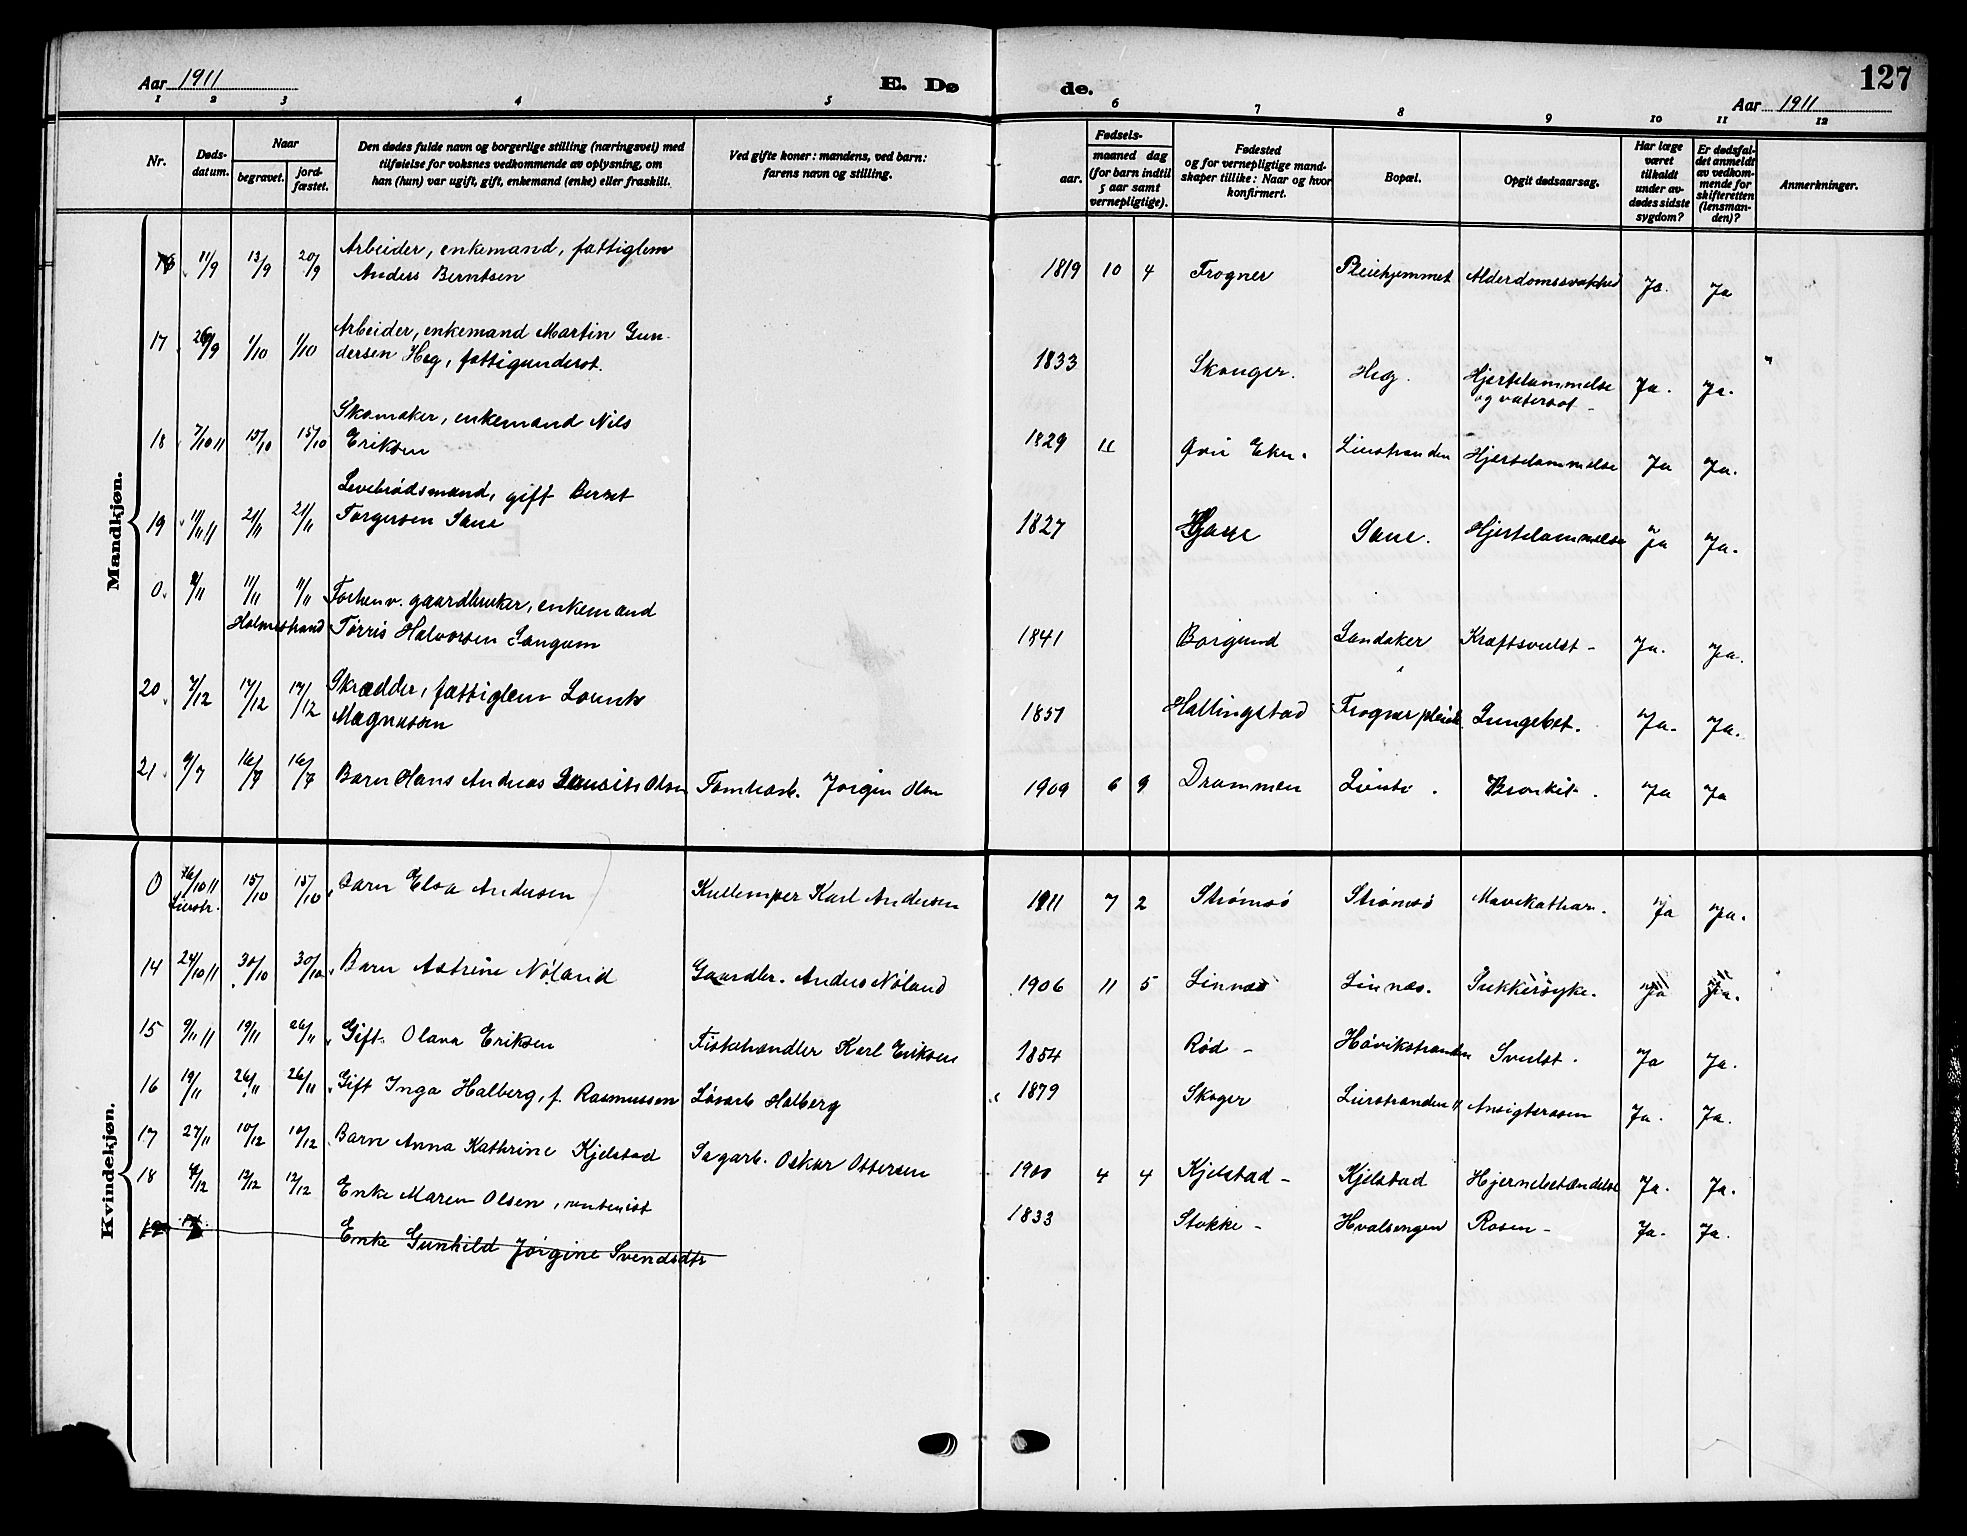 Aar 1911
E. Dø de.
127
Aar 1911
1 2 3 4 5 6 7 8 9 10 11 12
Nr.
Døds-
datum.
Naar
begravet.
jord-
fæstet.
Den dødes fulde navn og borgerlige stilling (næringsvei) med
tilføielse for voksnes vedkommende av oplysning, om
han (hun) var ugift, gift, enkemand (enke) eller fraskilt.
Ved gifte koner: mandens, ved barn:
farens navn og stilling.
Fødsels-
aar.
maaned dag
(for barn indtil
5 aar samt
vernepligtige).
Fødested
og for vernepligtige mand-
skaper tillike: Naar og hvor
konfirmert.
Bopæl.
Opgit dødsaarsag.
Har læge
været
tilkaldt
under av-
dødes sidste
sygdom?
Er dødsfal-
det anmeldt
av vedkom-
mende for
skifteretten
(lensman-
den)?
Anmerkninger.
Mandkjøn.
16 11/9 13/9 20/9 Arbeider, enkemand, fattiglem
Anders Berntsen
1819 10 4 Frogner Pleiehjemmet Alderdomssvakhed Ja. Ja
17 26/9 1/10 1/10 Arbeider, enkemand Martin Gun-
dersen Heg, fattigunderst.
1833 Skouger. Heg. Hjertelammelse
og vatersot - Ja. Ja.
18 7/10 11 15/10 15/10 Skomaker, enkemand Nils
Eriksen
1829 11 Øvre Eker. Lierstranden Hjertelammelse Ja Ja.
19 11/11 11 21/11 21/11 Levebrødsmand, gift Bernt
Torgersen Saue
1827 Saue. Hjertelammelse Ja Ja.
0. 9/11 11/11 11/11 Forhenv. gaardbruker, enkemand
Holmestrand Tørris Halvorsen Langum
1841 Borgund Landaker Kræftsvulst - Ja. Ja.
20 7/12 17/12 17/12 Skrædder, fattiglem Lorents
Magnussen
1857 Hallingstad Frogner pleieh. Lungebet. Ja. Ja.
21 9/7 16/7 16/7 Barn Hans Andreas Olsen Tomtearb. Jørgen Olsen
1909 6 9 Drammen Lierstr. Bronkit. Ja Ja
Kvindekjøn.
0 10/10 11 15/10 15/10 Barn Elsa Andersen Kullemper Karl Andersen
Lierstr.
1911 7 2 Strømsø Strømsø Mavekathar. Ja Ja.
14 24/10 11 30/10 30/10 Barn Astrine Nøland Gaardbr. Anders Nøland
1906 11 5 Linnæs Linnæs. Sukkersyke. Ja Ja.
15 9/11 11 19/11 26/11 Gift Olava Eriksen Fiskehandler Karl Eriksen
1854 Rød - Høvikstranden Svulst. Ja Ja.
16 19/11 26/11 26/11 Gift Inga Halberg, f. Rasmussen Løsarb Halberg
1879 Skoger Lierstranden Ansigtsrosen Ja. Ja.
17 27/11 10/12 10/12 Barn Anna Kathrine Kjelstad Sagarb. Oskar Ottersen
1900 4 4 Kjelstad - Kjelstad Hjernebetændelse Ja. Ja.
18 4/12 12/12 12/12 Enke Maren Olsen, rentenist
1833 Stokke - Hvalsengen Rosen - Ja. Ja.
19 Enke Gunhild Jørgine Svendsdtr